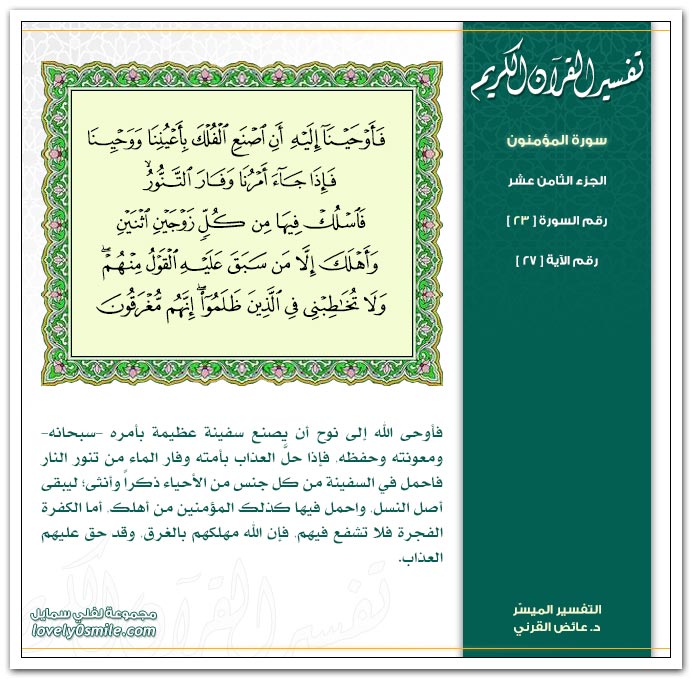 تفسير القرآن الكريم
سورة المؤمنون
الجزء الثامن عشر
رقم السورة [ ٢٣ ]
رقم الآية [ ٢٧ ]
فَأَوْحَيْنَآ إِلَيْهِ أَنِ ٱصْنَعِ ٱلْفُلْكَ بِأَعْيُنِنَا وَوَحْيِنَا
فَإِذَا جَآءَ أَمْرُنَا وَفَارَ ٱلتَّنُّورُ ۙ
فَٱسْلُكْ فِيهَا مِن كُلٍّ زَوْجَيْنِ ٱثْنَيْنِ
وَأَهْلَكَ إِلَّا مَن سَبَقَ عَلَيْهِ ٱلْقَوْلُ مِنْهُمْ ۖ
وَلَا تُخَٰطِبْنِى فِى ٱلَّذِينَ ظَلَمُوٓا۟ ۖ إِنَّهُم مُّغْرَقُونَ
فأوحى الله إلى نوح أن يصنع سفينة عظيمة بأمره -سبحانه-
ومعونته وحفظه، فإذا حلَّ العذاب بأمته وفار الماء من تنور النار
فاحمل في السفينة من كل جنس من الأحياء ذكراً وأنثى؛ ليبقى
أصل النسل، واحمل فيها كذلك المؤمنين من أهلك، أما الكفرة
الفجرة فلا تشفع فيهم، فإن الله مهلكهم بالغرق، وقد حق عليهم
العذاب.
تفسير القرآن الكريم
التفسير الميسّر
د. عائض القرني
مجموعة لفلي سمايل
lovely0smile.com